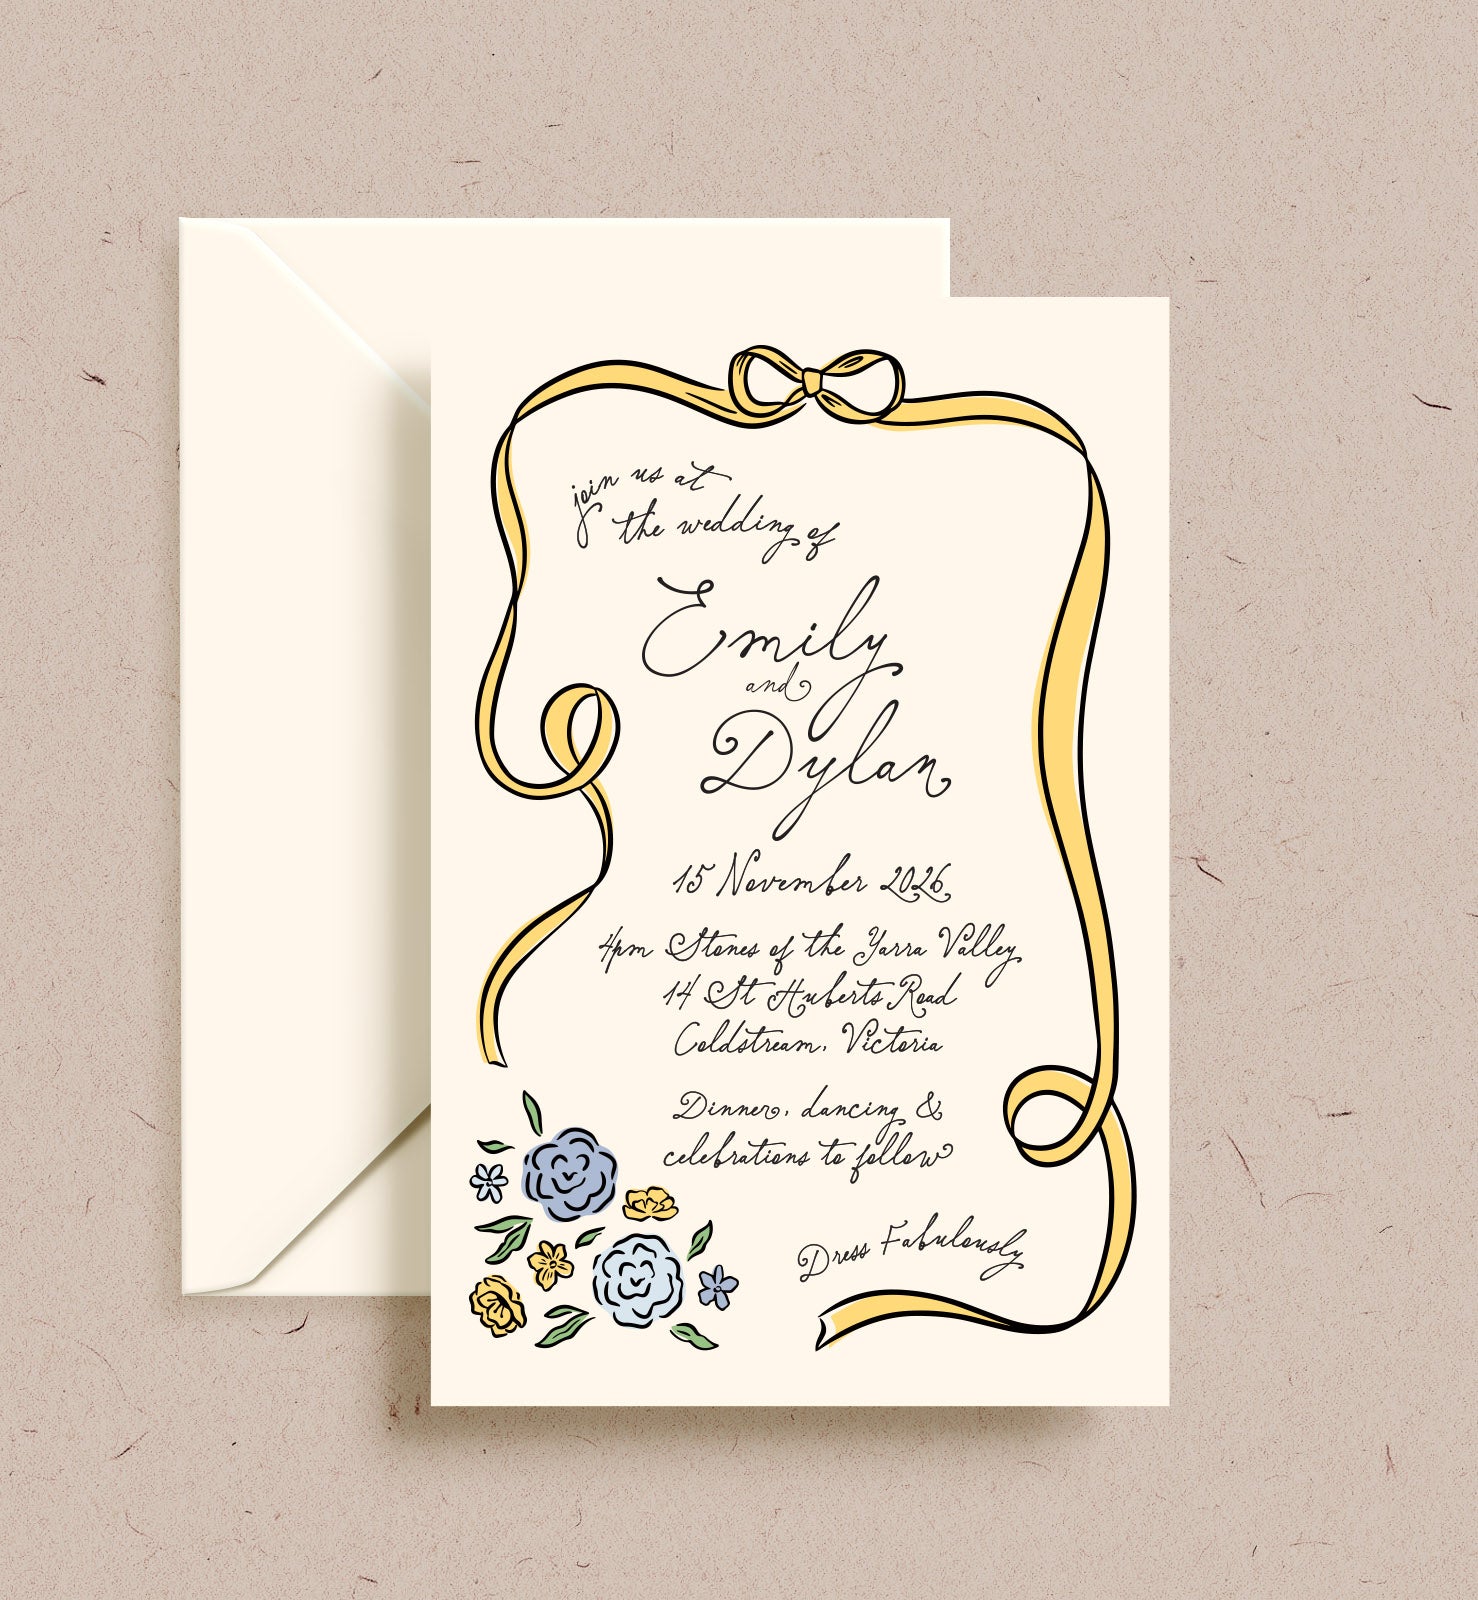 join us at
the wedding of
Emily
and
Dylan
15 November 2026
4pm Stones of the Yarra Valley
14 St Huberts Road
Coldstream, Victoria
Dinner, dancing &
celebrations to follow
Dress Fabulously